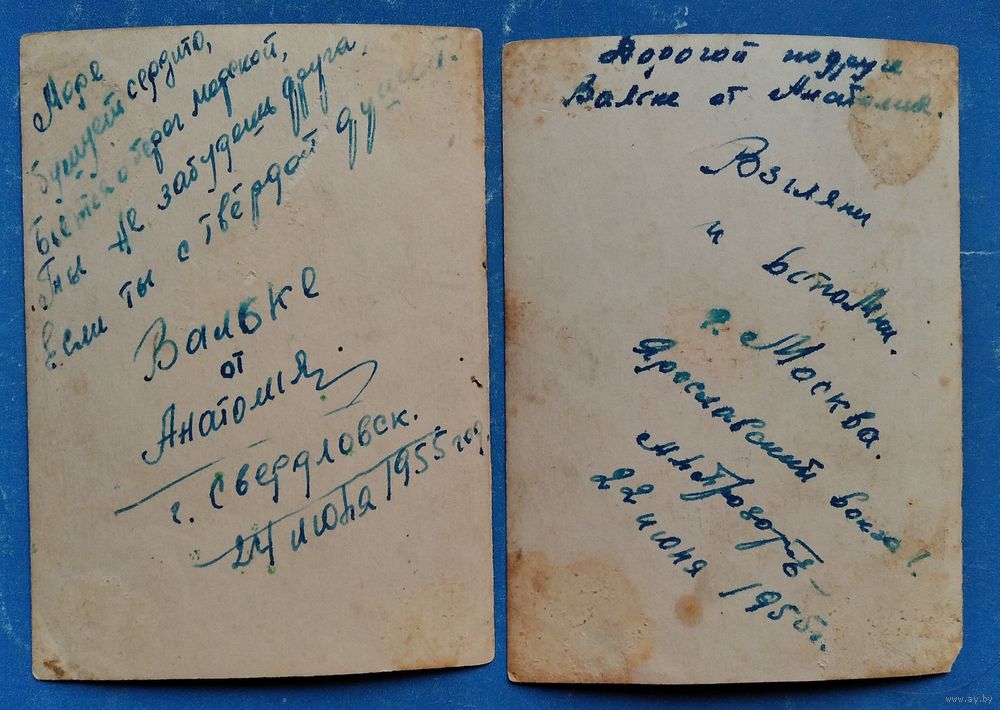 Море
бушует сердито,
бьётся о берег морской,
Ты не забудешь друга
Если ты с твёрдой душой.
Вальке
от
Анатолия.
г. Свердловск.
24 июня 1955 год.
Дорогой подруге
Вальке от Анатолия.
Взгляни
и вспомни.
г. Москва.
Ярославский вокзал.
22 июня 1955 г.
www.ay.by